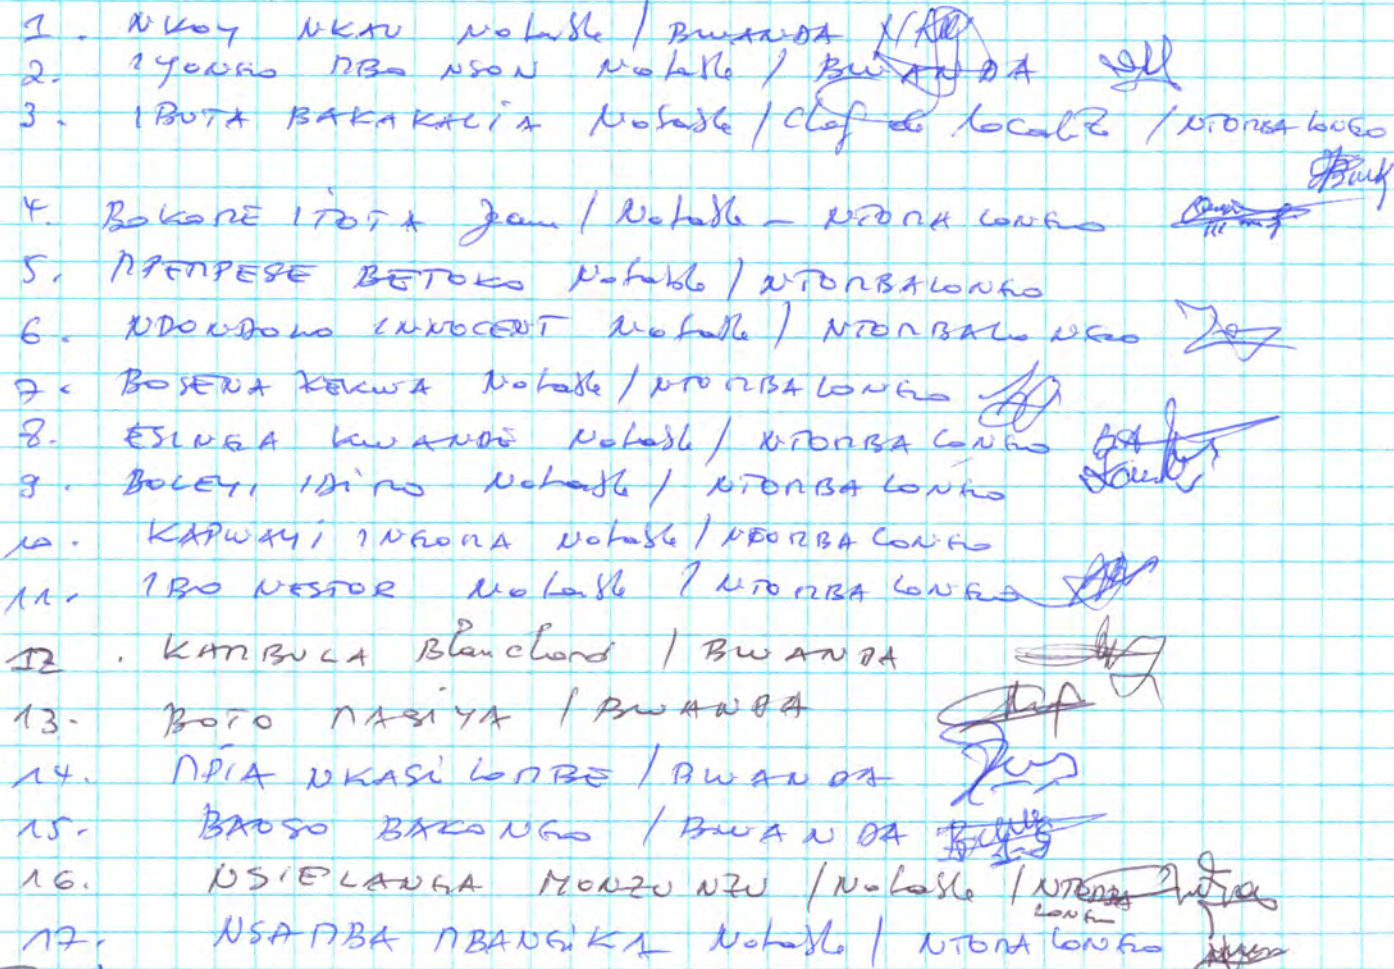 1. NKOY NKAU Notable / BWANDA
2. IYONGO MBO NSON Notable / BWANDA
3. IBUTA BAKAKALIA Notable / Chef de localé / NTOMBA LONGO
4. BOKOME ITOTA Jean / Notable - NTOMA LONGO
5. MPEMPESE BETOKO Notable / NTOMBALONGO
6. NDONDOKO INNOCENT Notable / NTOMBALONGO
7. BOSENA KEKWA Notable / NTOMBA LONGO
8. ESINGA KWANDE Notable / NTOMBA LONGO
9. BOLEYI Notable / NTOMBA LONGO
10. KAPWAYI INGOMA Notable / NTOMBA LONGO
11. IBO NESTOR Notable / NTOMBA LONGO
12. KAMBULA Blanchard / BWANDA
13. BOTO MASIYA / BWANDA
14. MPIA NKASI LOMBE / BWANDA
15. BAOSO BAKONGO / BWANDA
16. NSIELANGA MONZUNZU / Notable / NTOMBA LONGO
17. NSAMBA MBANGIKA Notable / NTOMA LONGO